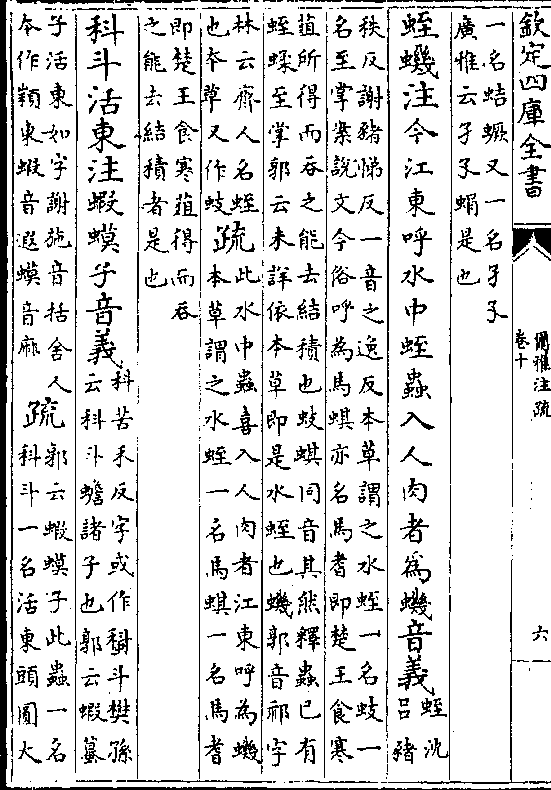 欽定四庫全書
爾雅注疏
卷十
六
一名蛣蟩又一名孑孓
廣雅云孑孓蜎是也
蛭蟣注今江東呼水中蛭蟲入人肉者為蟣音義蛭沈
呂豬
秩反謝豬悌反一音之逸反本草謂之水蛭一名蚑一
名至掌案說文今俗呼為馬蜞亦名馬耆即楚王食寒
葅所得而吞之能去結積也蚑蜞同音其然釋蟲已有
蛭蝚至掌郭云未詳依本草即是水蛭也蟣郭音祁字
林云齊人名蛭
也本草又作蚑
疏此水中蟲喜入人肉者江東呼為蟣
本草謂之水蛭一名馬蜞一名馬耆
即楚王食寒葅得而吞
之能去結積者是也
科斗活東注蝦蟇子音義科苦禾反字或作蝌斗樊孫
云科斗蟾諸子也郭云蝦蟇
子活東如字謝施音括舍人
本作顆東蝦音遐蟇音麻
疏郭云蝦蟇子此蟲一名
科斗一名活東頭圓大